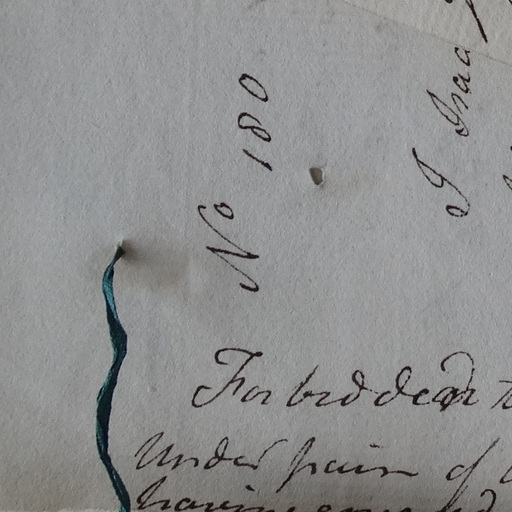 No 180
I Isaac
Forbidden
Under pain of
having